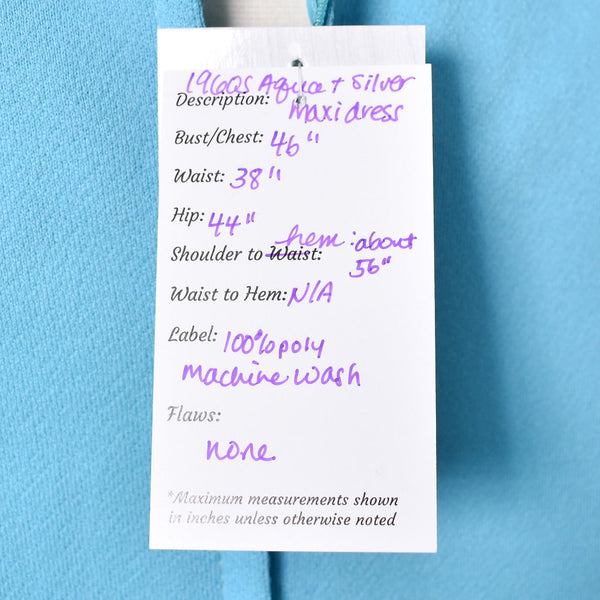 1960s Aqua + Silver
Description: Maxi dress
Bust/Chest: 46"
Waist: 38"
Hip: 44"
Shoulder to Waist: hem: about
56"
Waist to Hem: N/A
Label: 100% poly
Machine Wash
Flaws:
none
*Maximum measurements shown
in inches unless otherwise noted